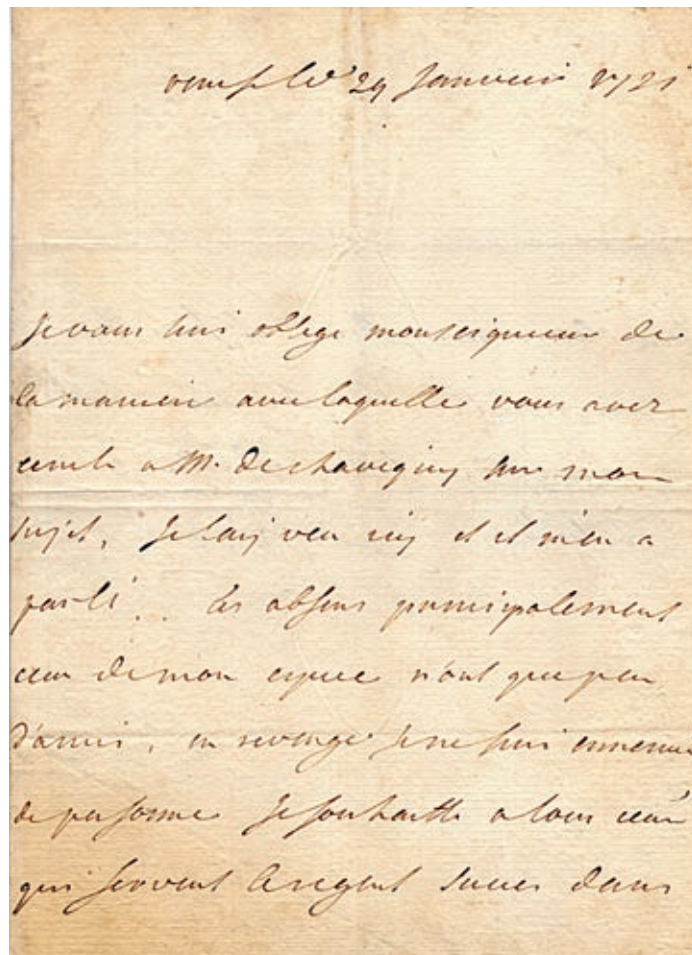 le 29 Janvier 1721
Je vous suis oblige monseigneur de
la maniere avec laquelle vous avez
ecrit a M. de chavigny sur mon
sujet, Je lay veu icy et il m'en a
parlé.. les absens principalement
ceux de mon espece n'ont que peu
d'amis, en revenge Je ne suis ennemi
de personne Je souhaitte a tous ceux
qui servent le regent succes dans